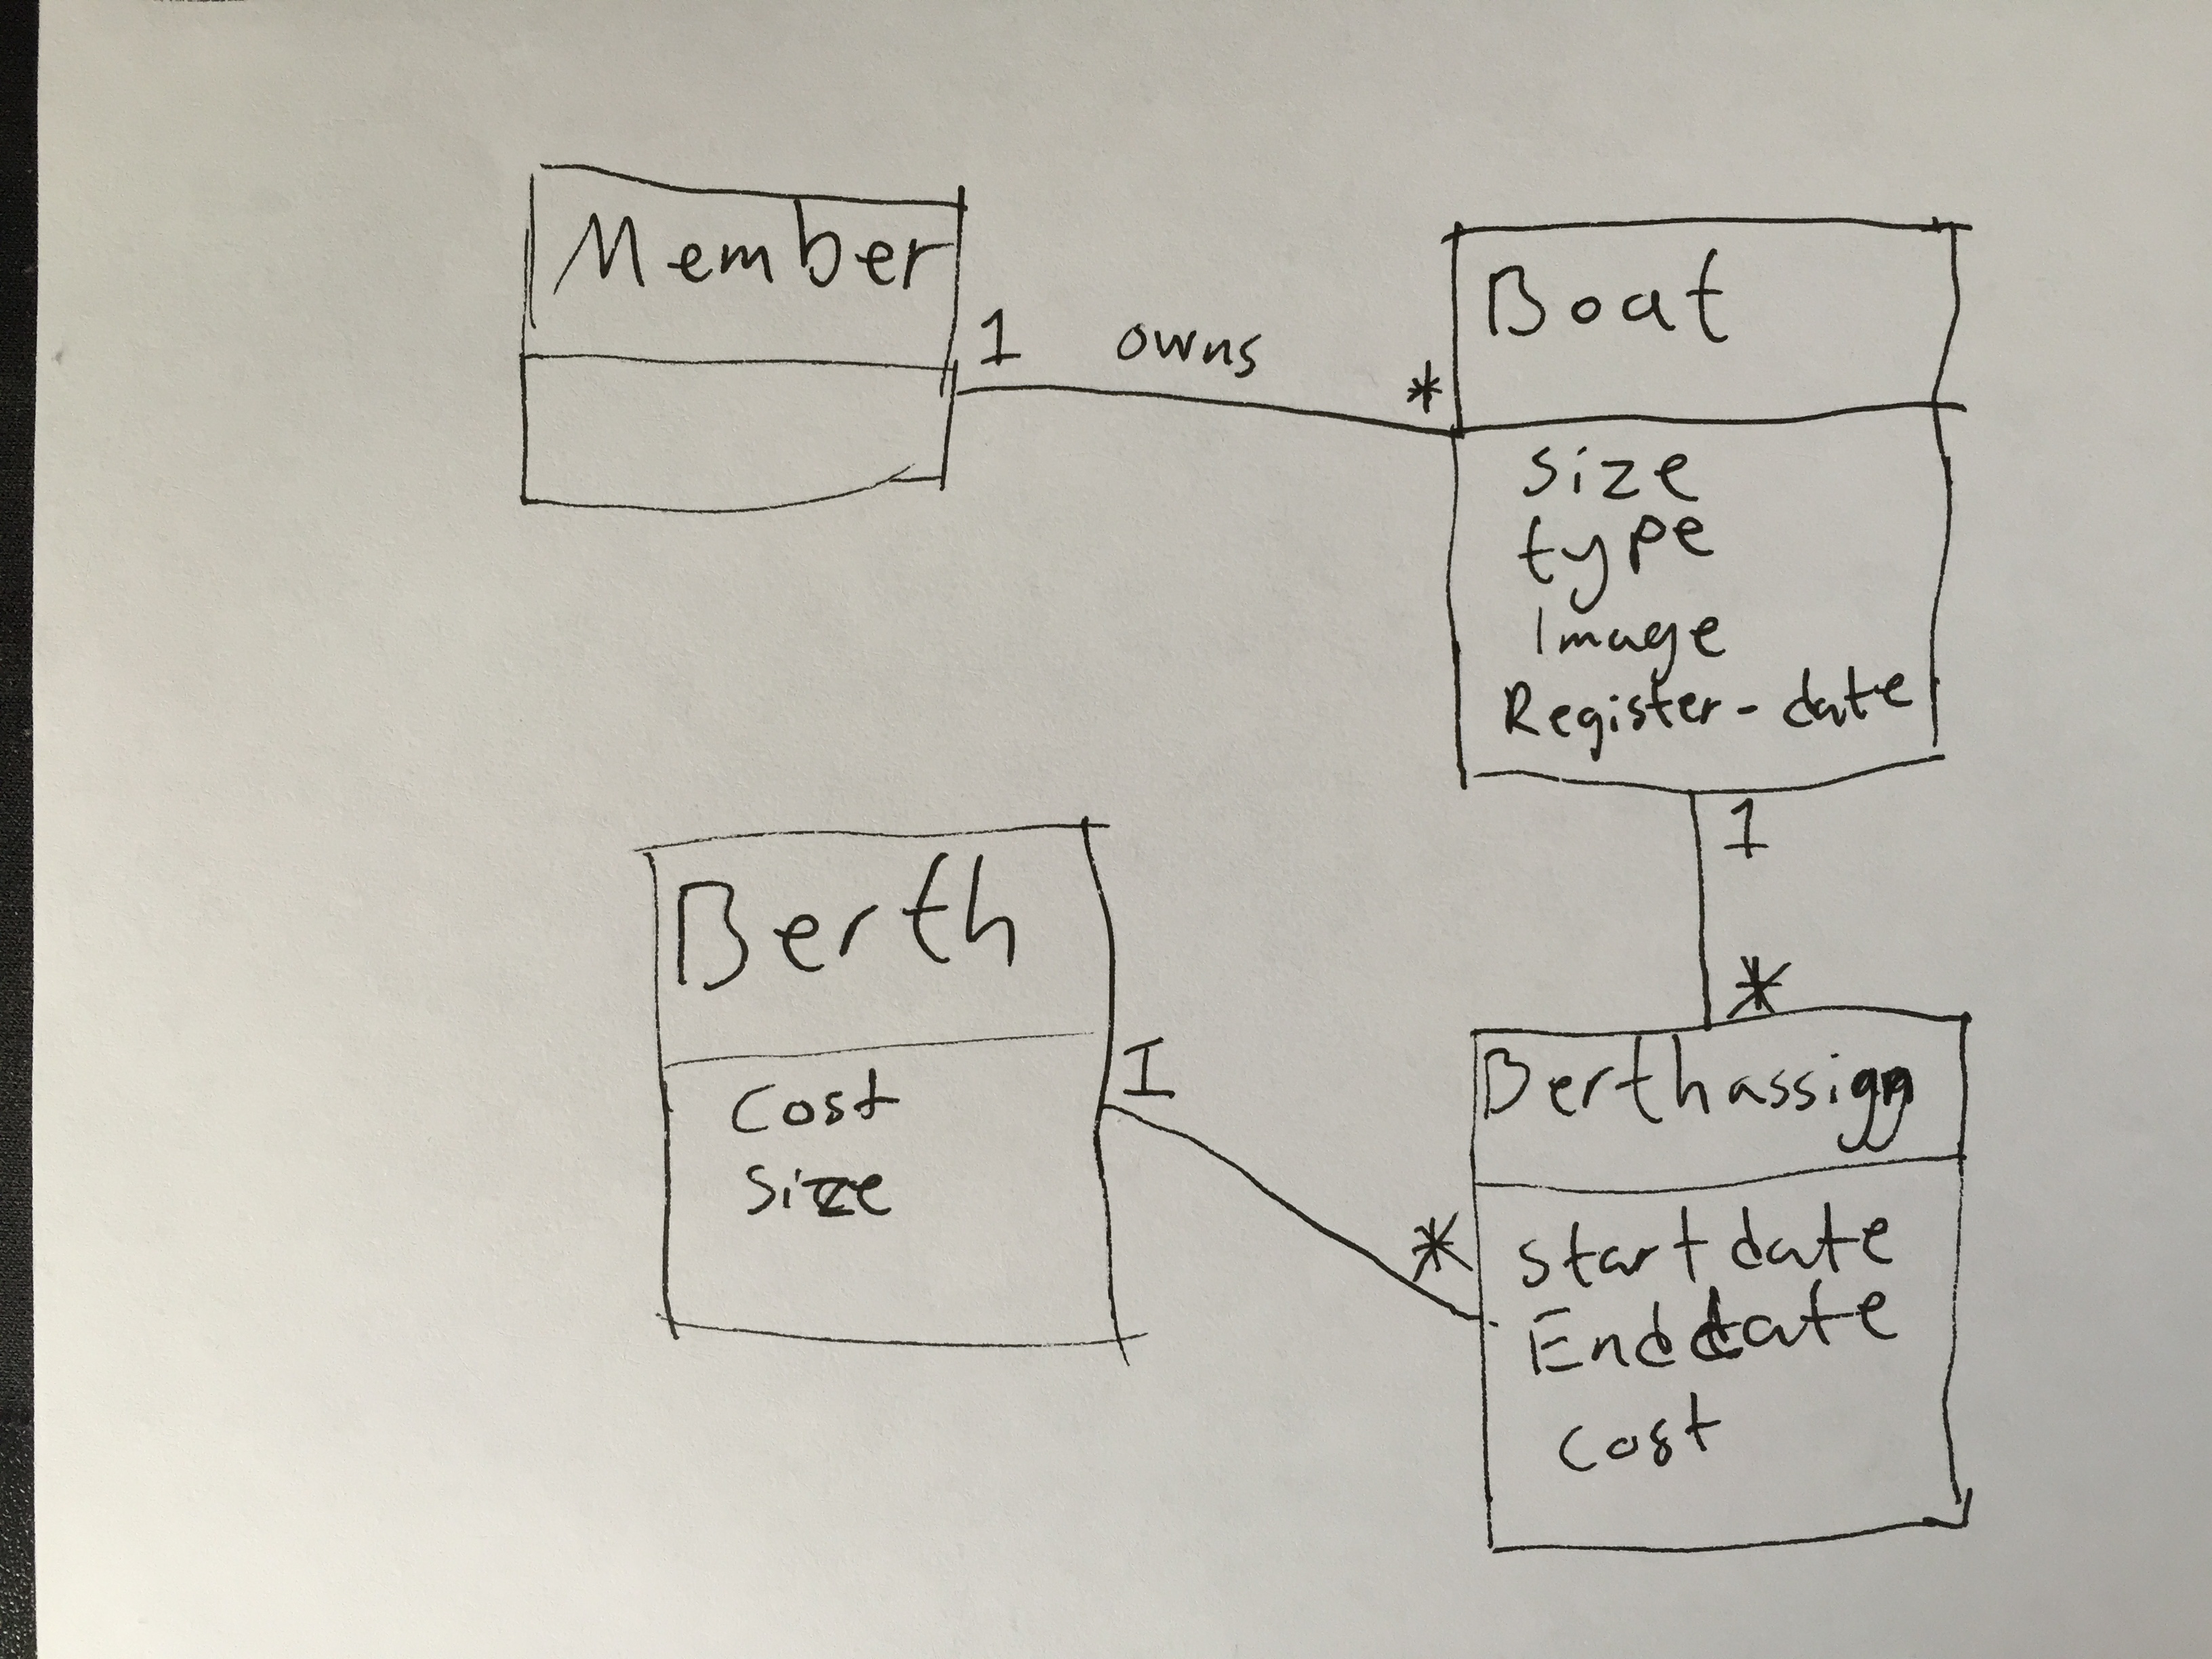 Member
1 owns *
Boat
size
type
Image
Register-date
1
*
Berth
Cost
Size
1
*
Berthassign
start date
End date
cost